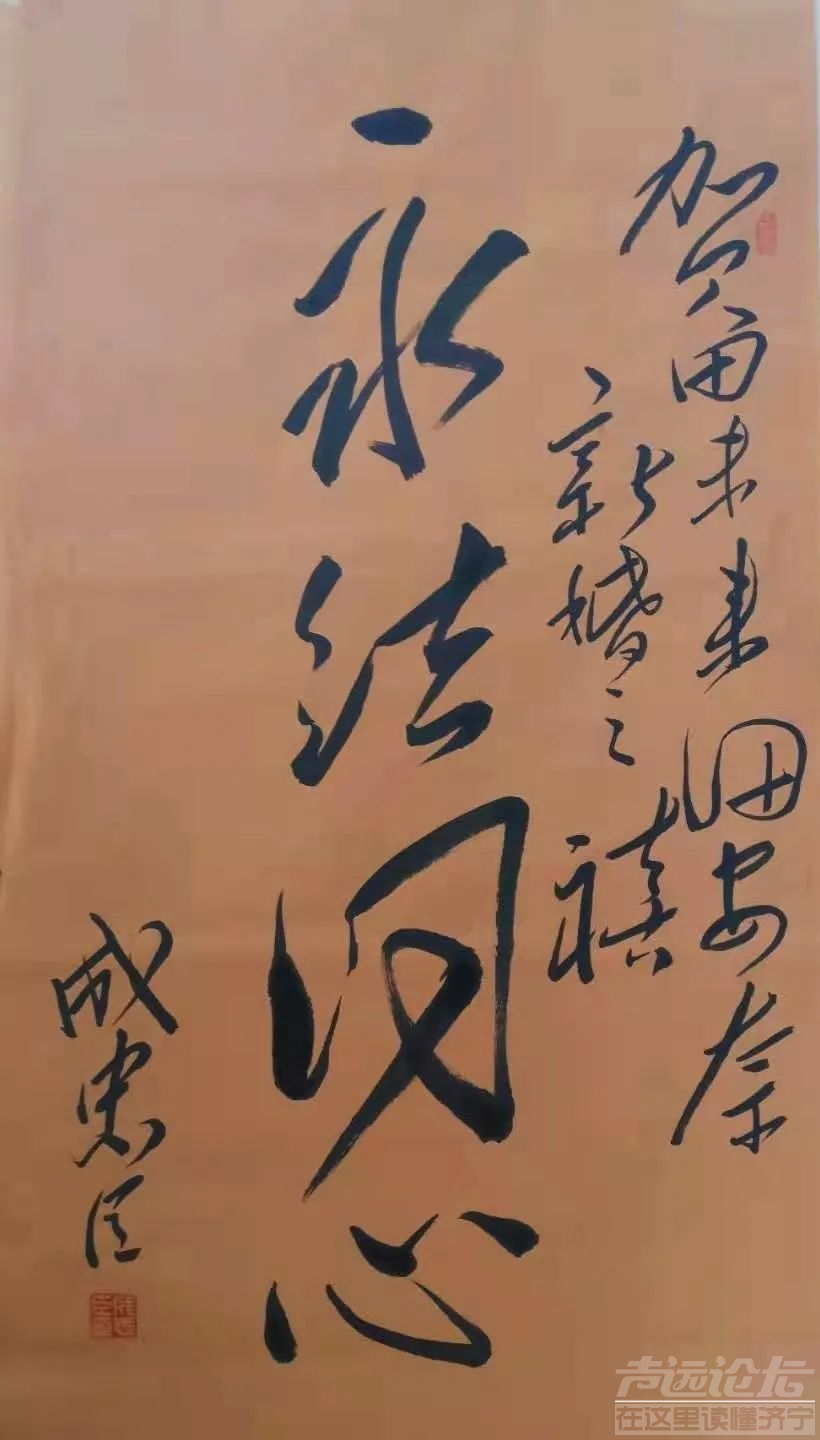 贺田未来 安奈
新婚之禧
永结同心
成忠臣
声远论坛
在这里读懂济宁